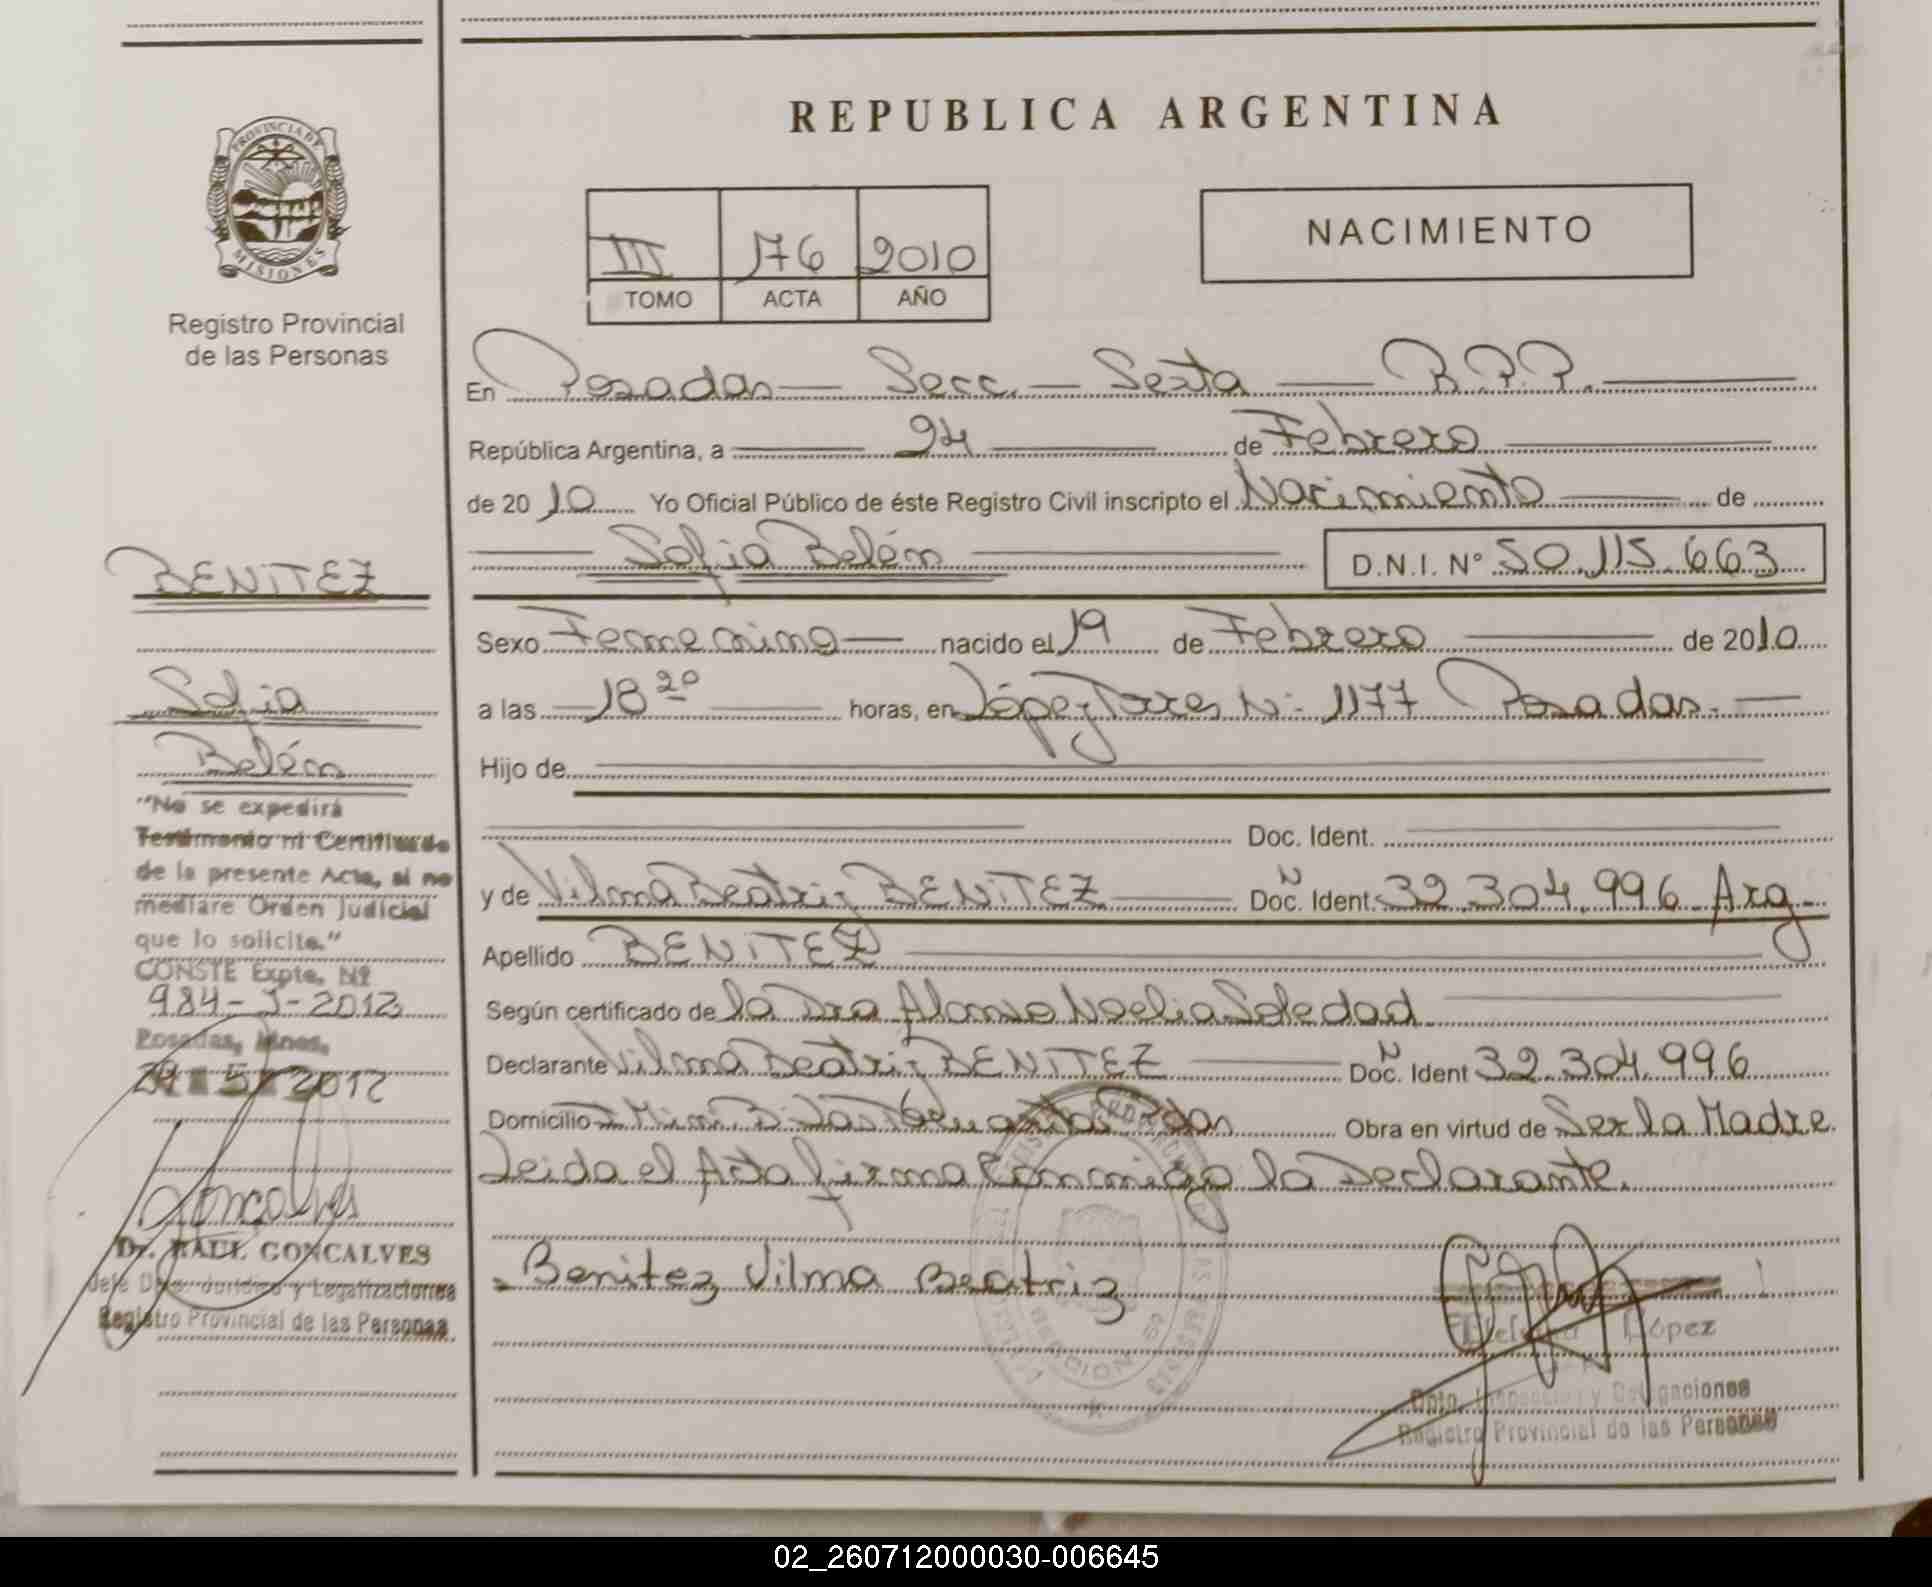 REPUBLICA ARGENTINA
PROVINCIA DE
MISIONES
Registro Provincial
de las Personas
NACIMIENTO
III 176 2010
TOMO ACTA AÑO
En Posadas - Secc. - Sexta - R.P.P.
República Argentina, a 24 de Febrero
de 2010 Yo Oficial Público de éste Registro Civil inscripto el Nacimiento de
Sofia Belén D.N.I. Nº 50.115.663
Sexo Femenino nacido el 19 de Febrero de 2010
a las 18 20 horas, en López Torres Nº 1177 Posadas.-
Hijo de
Doc. Ident.
y de Vilma Beatriz BENITEZ Doc. N Ident. 32.304.996 Arg.
Apellido BENITEZ
Según certificado de la Dra Alonso Noelia Soledad
Declarante Vilma Beatriz BENITEZ Doc. N Ident 32.304.996
Domicilio Obra en virtud de Ser la Madre.
Leida el Acta firma Conmigo la Declarante.
Benitez Vilma Beatriz
López
Dpto. Inspección y Delegaciones
Registro Provincial de las Personas
BENITEZ
Sofia
Belén
"No se expedirá
Testimonio ni Certificado
de la presente Acta, si no
mediare Orden Judicial
que lo solicite."
CONSTE Expte. Nº
984-J-2012
Posadas, Mnes.
29 5 2012
Dr. RAUL GONCALVES
Jefe Dpto. Jurídico y Legalizaciones
Registro Provincial de las Personas
02_260712000030-006645